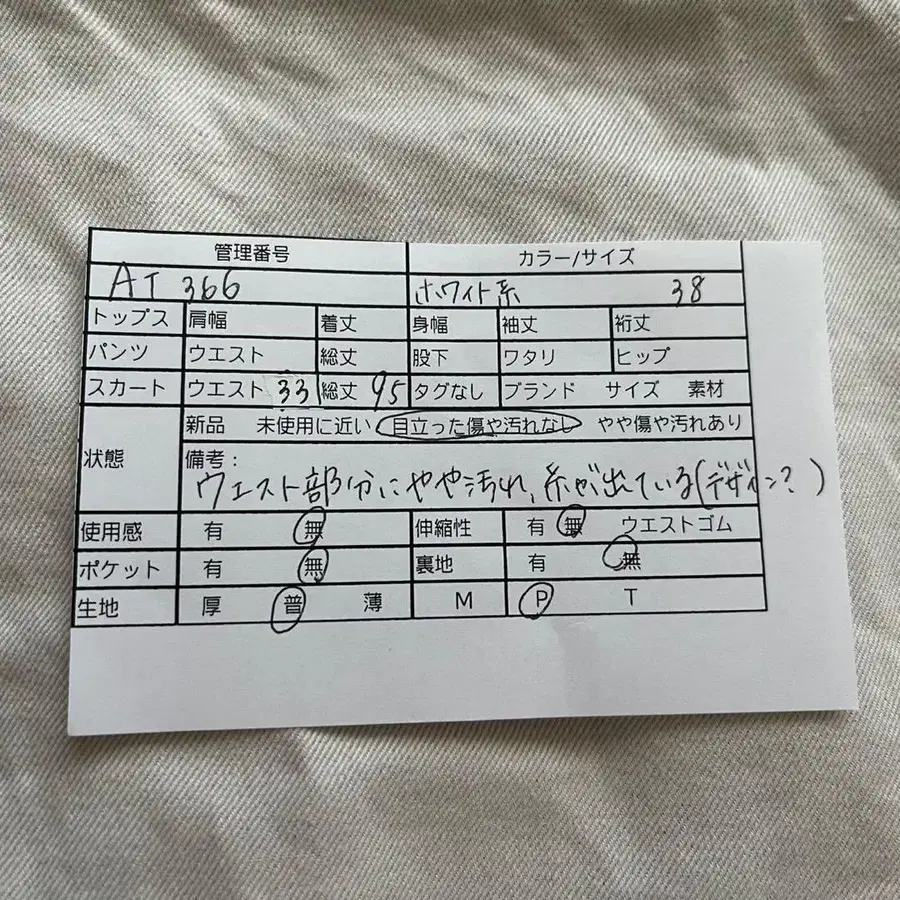 管理番号 カラー/サイズ
AT 366 ホワイト系 38
トップス 肩幅 着丈 身幅 袖丈 裄丈
パンツ ウエスト 総丈 股下 ワタリ ヒップ
スカート ウエスト 33 総丈 95 タグなし ブランド サイズ 素材
状態 新品 未使用に近い 目立った傷や汚れなし やや傷や汚れあり
備考:
ウエスト部分にやや汚れ、糸が出ている(デザイン?)
使用感 有 無 伸縮性 有 無 ウエストゴム
ポケット 有 無 裏地 有 無
生地 厚 普 薄 M P T